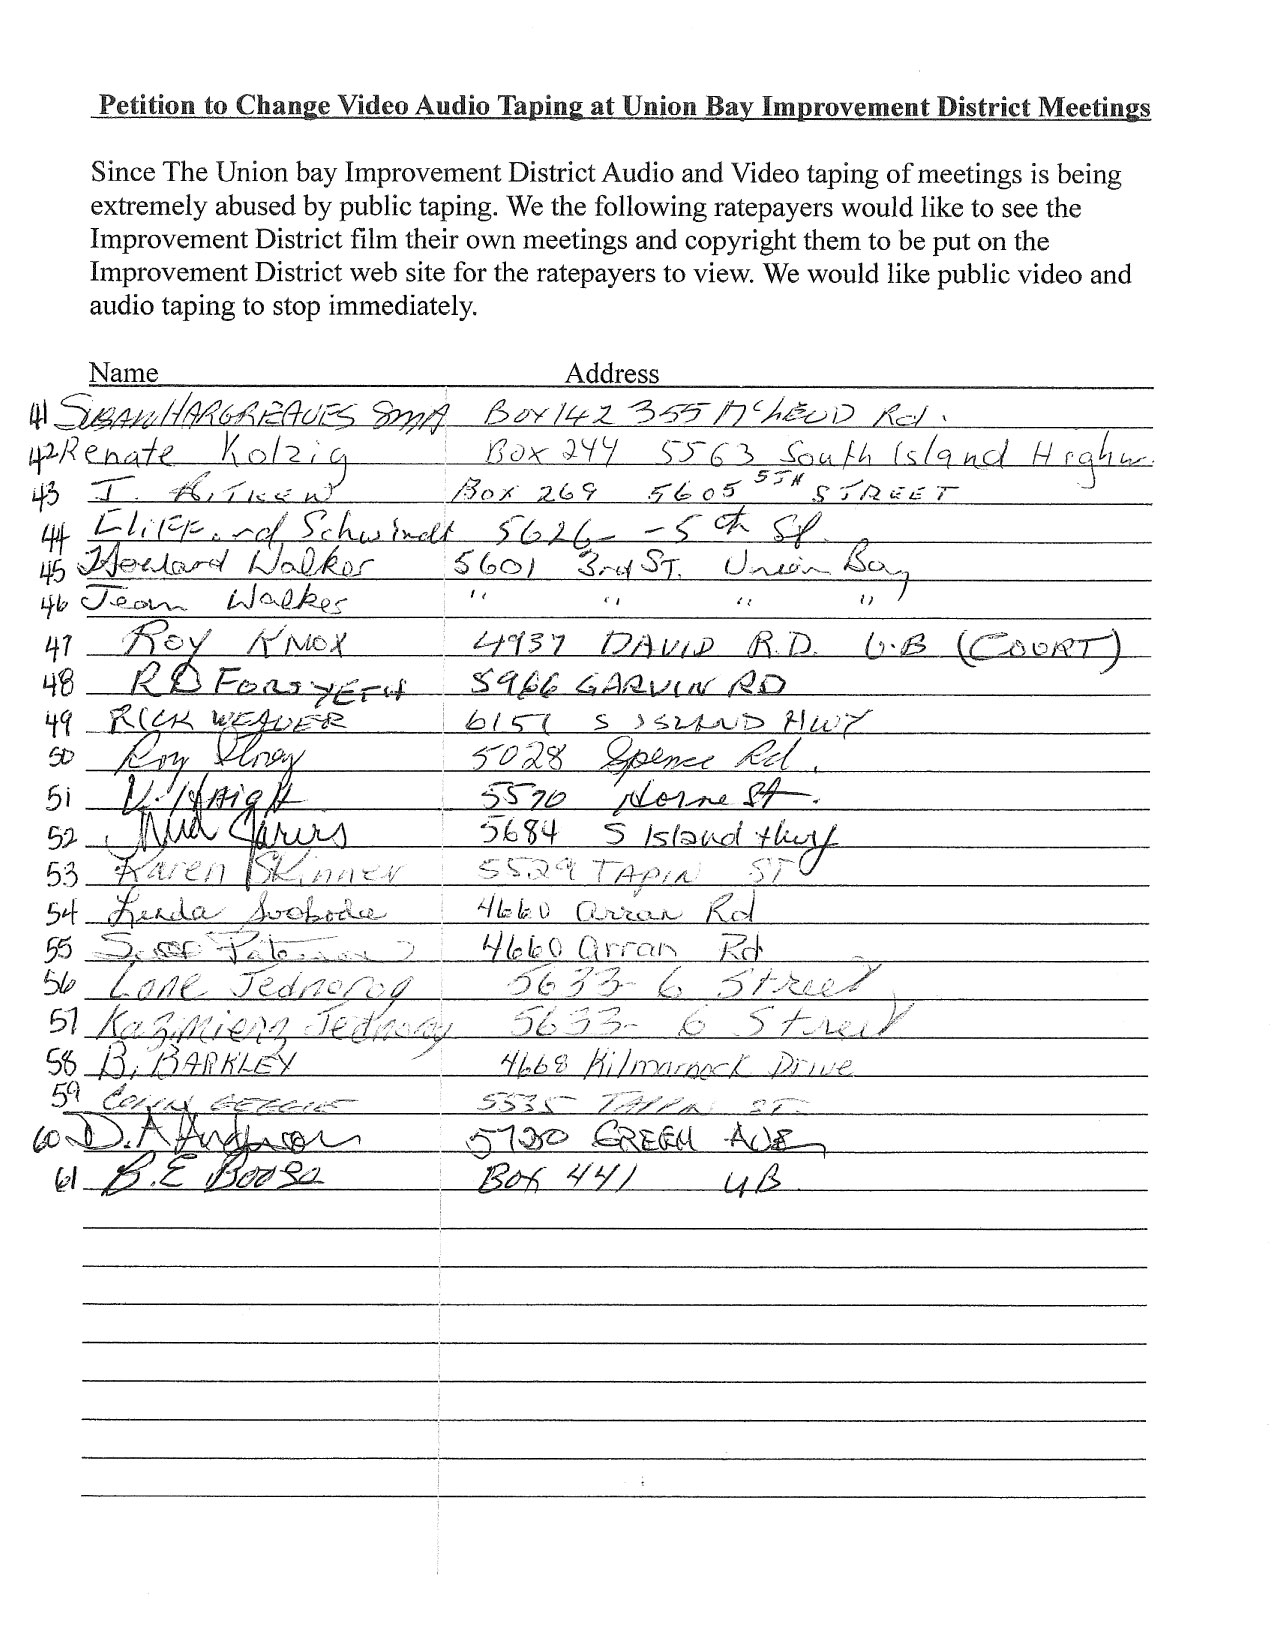 Petition to Change Video Audio Taping at Union Bay Improvement District Meetings
Since The Union bay Improvement District Audio and Video taping of meetings is being
extremely abused by public taping. We the following ratepayers would like to see the
Improvement District film their own meetings and copyright them to be put on the
Improvement District web site for the ratepayers to view. We would like public video and
audio taping to stop immediately.
Name Address
41 SUSAN HARGREAVES Box 142 355 McLEOD Rd.
42 Renate Kolzig Box 244 5563 South Island Highw.
43 J. AiTKEN Box 269 5605 5TH STREET
44 Clifford Schwindt 5626 - 5th St.
45 Howard Walker 5601 3rd ST. Union Bay
46 Jean Walker " " " "
47 ROY KNOX 4937 DAVID R.D. U.B (COURT)
48 RD FORSYETH 5966 GARVIN RD
49 RICK WEAVER 6151 S ISLAND HWY
50 Roy 5028 Spence Rd.
51 V. HAIGH 5570 Horne St.
52 5684 S Island Hwy
53 Karen Skinner 5529 TAPIN ST
54 Linda Svoboda 4660 Arran Rd
55 4660 Arran Rd
56 Lone Jednorog 5633- 6 Street
57 Kazmierz Jednorog 5633- 6 Street
58 B. BARKLEY 4668 Kilmarnock Drive
59 5535 TAPPIN ST.
60 D. A Anderson GREEN AVE
61 B.E Box 441 UB